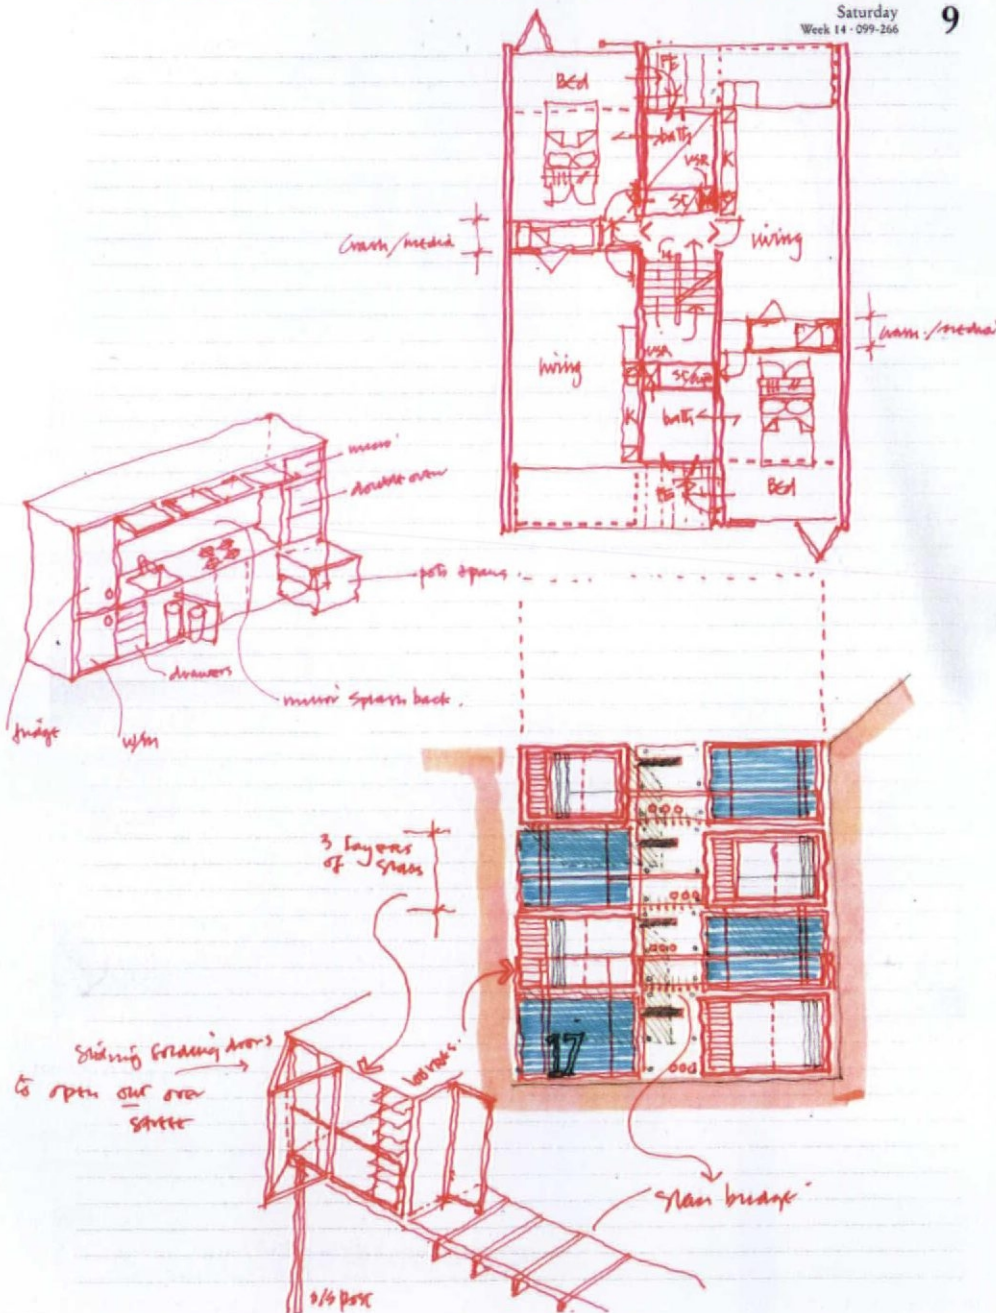 Saturday
Week 14 · 099-266
9
Bed
FE
bath
VSR
K
St
Crash/media
living
living
VSR
bath
K
Bed
micro
double oven
drawers
mirror splash back.
fridge
w/m
3 layers
of glass
17
Sliding folding doors
to open out over
street
glass bridge
s/s post